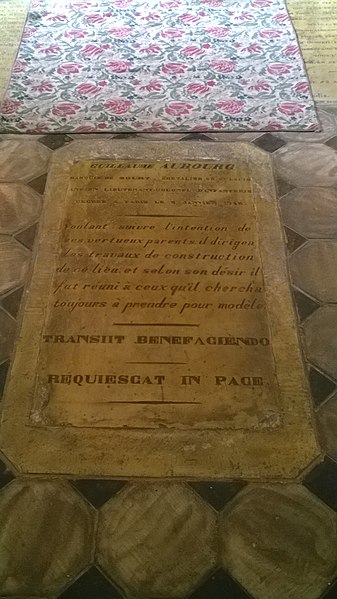 GUILLAUME AUBOURG
MARQUIS DE BOURY, CHEVALIER DE ST LOUIS
ANCIEN LIEUTENANT-COLONEL D'INFANTERIE
DÉCÉDÉ A PARIS LE JANVIER
Voulant suivre l'intention de
ses vertueux parents, il dirigea
les travaux de construction
de ce lieu, et selon son désir il
fut réuni à ceux qu'il chercha
toujours à prendre pour modèle
TRANSIIT BENEFACIENDO
REQUIESCAT IN PACE